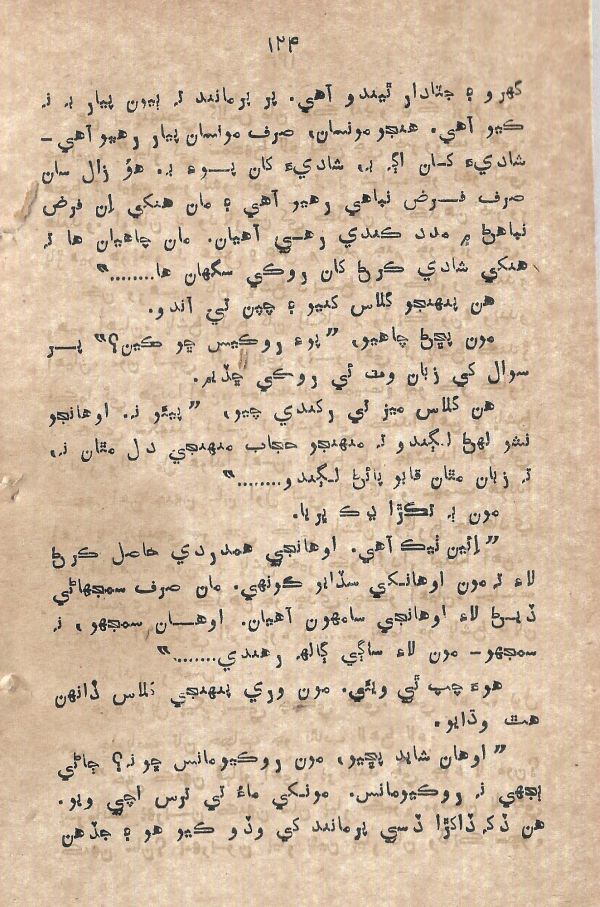 ۱۲۴
گهرو ۽ جٽادار ٿيندو آهي. پر پرمانند تہ ٻيون پيار بہ نہ
ڪيو آهي. هنجو مونسان، صرف مونسان پيار رهيو آهي–
شاديءَ کان اڳہ بہ، شاديءَ کان پوءِ بہ. هوُ زال سان
صرف فرض نباهي رهيو آهي ۽ مان هنکي اِن فرض
نباهڻ ۾ مدد ڪندي رهي آهيان. مان چاهيان ها تہ
هنکي شادي ڪرڻ کان روڪي سگهان ها........“
هن پنهنجو گلاس کنيو ۽ چپن تي آندو.
مون پڇڻ چاهيو، ”پوءِ روڪيس ڇو ڪين؟“ پر
سوال کي زبان وٽ ئي روڪي ڇڏيم.
هن گلاس ميز تي رکندي چيو، ”پيئو نہ. اوهانجو
نشو لهڻ لڳندو تہ منهنجو حجاب منهنجي دل مٿان نہ،
تہ زبان مٿان قابو پائڻ لڳندو........“
مون بہ ٽڪڙا ڍڪ ڀريا.
”اِئين ٺيڪ آهي. اوهانجي همدردي حاصل ڪرڻ
لاءِ تہ مون اوهانکي سڏايو ڪونهي. مان صرف سمجهاڻي
ڏيڻ لاءِ اوهانجي سامهون آهيان. اوهان سمجهو، نہ
سمجهو– مون لاءِ ساڳي ڳالهہ رهندي.......“
هوءَ چپ ٿي ويئي. مون وري پنهنجي گلاس ڏانهن
هٿ وڌايو.
”اوهان شايد پڇيو، مون روڪيومانس ڇو نہ؟ ڄاڻي
ٻجهي نہ روڪيومانس. مونکي ماءُ تي ترس اچي ويو.
هن ڏکہ ڏاکڙا ڏسي پرمانند کي وڏو ڪيو هو ۽ جڏهن